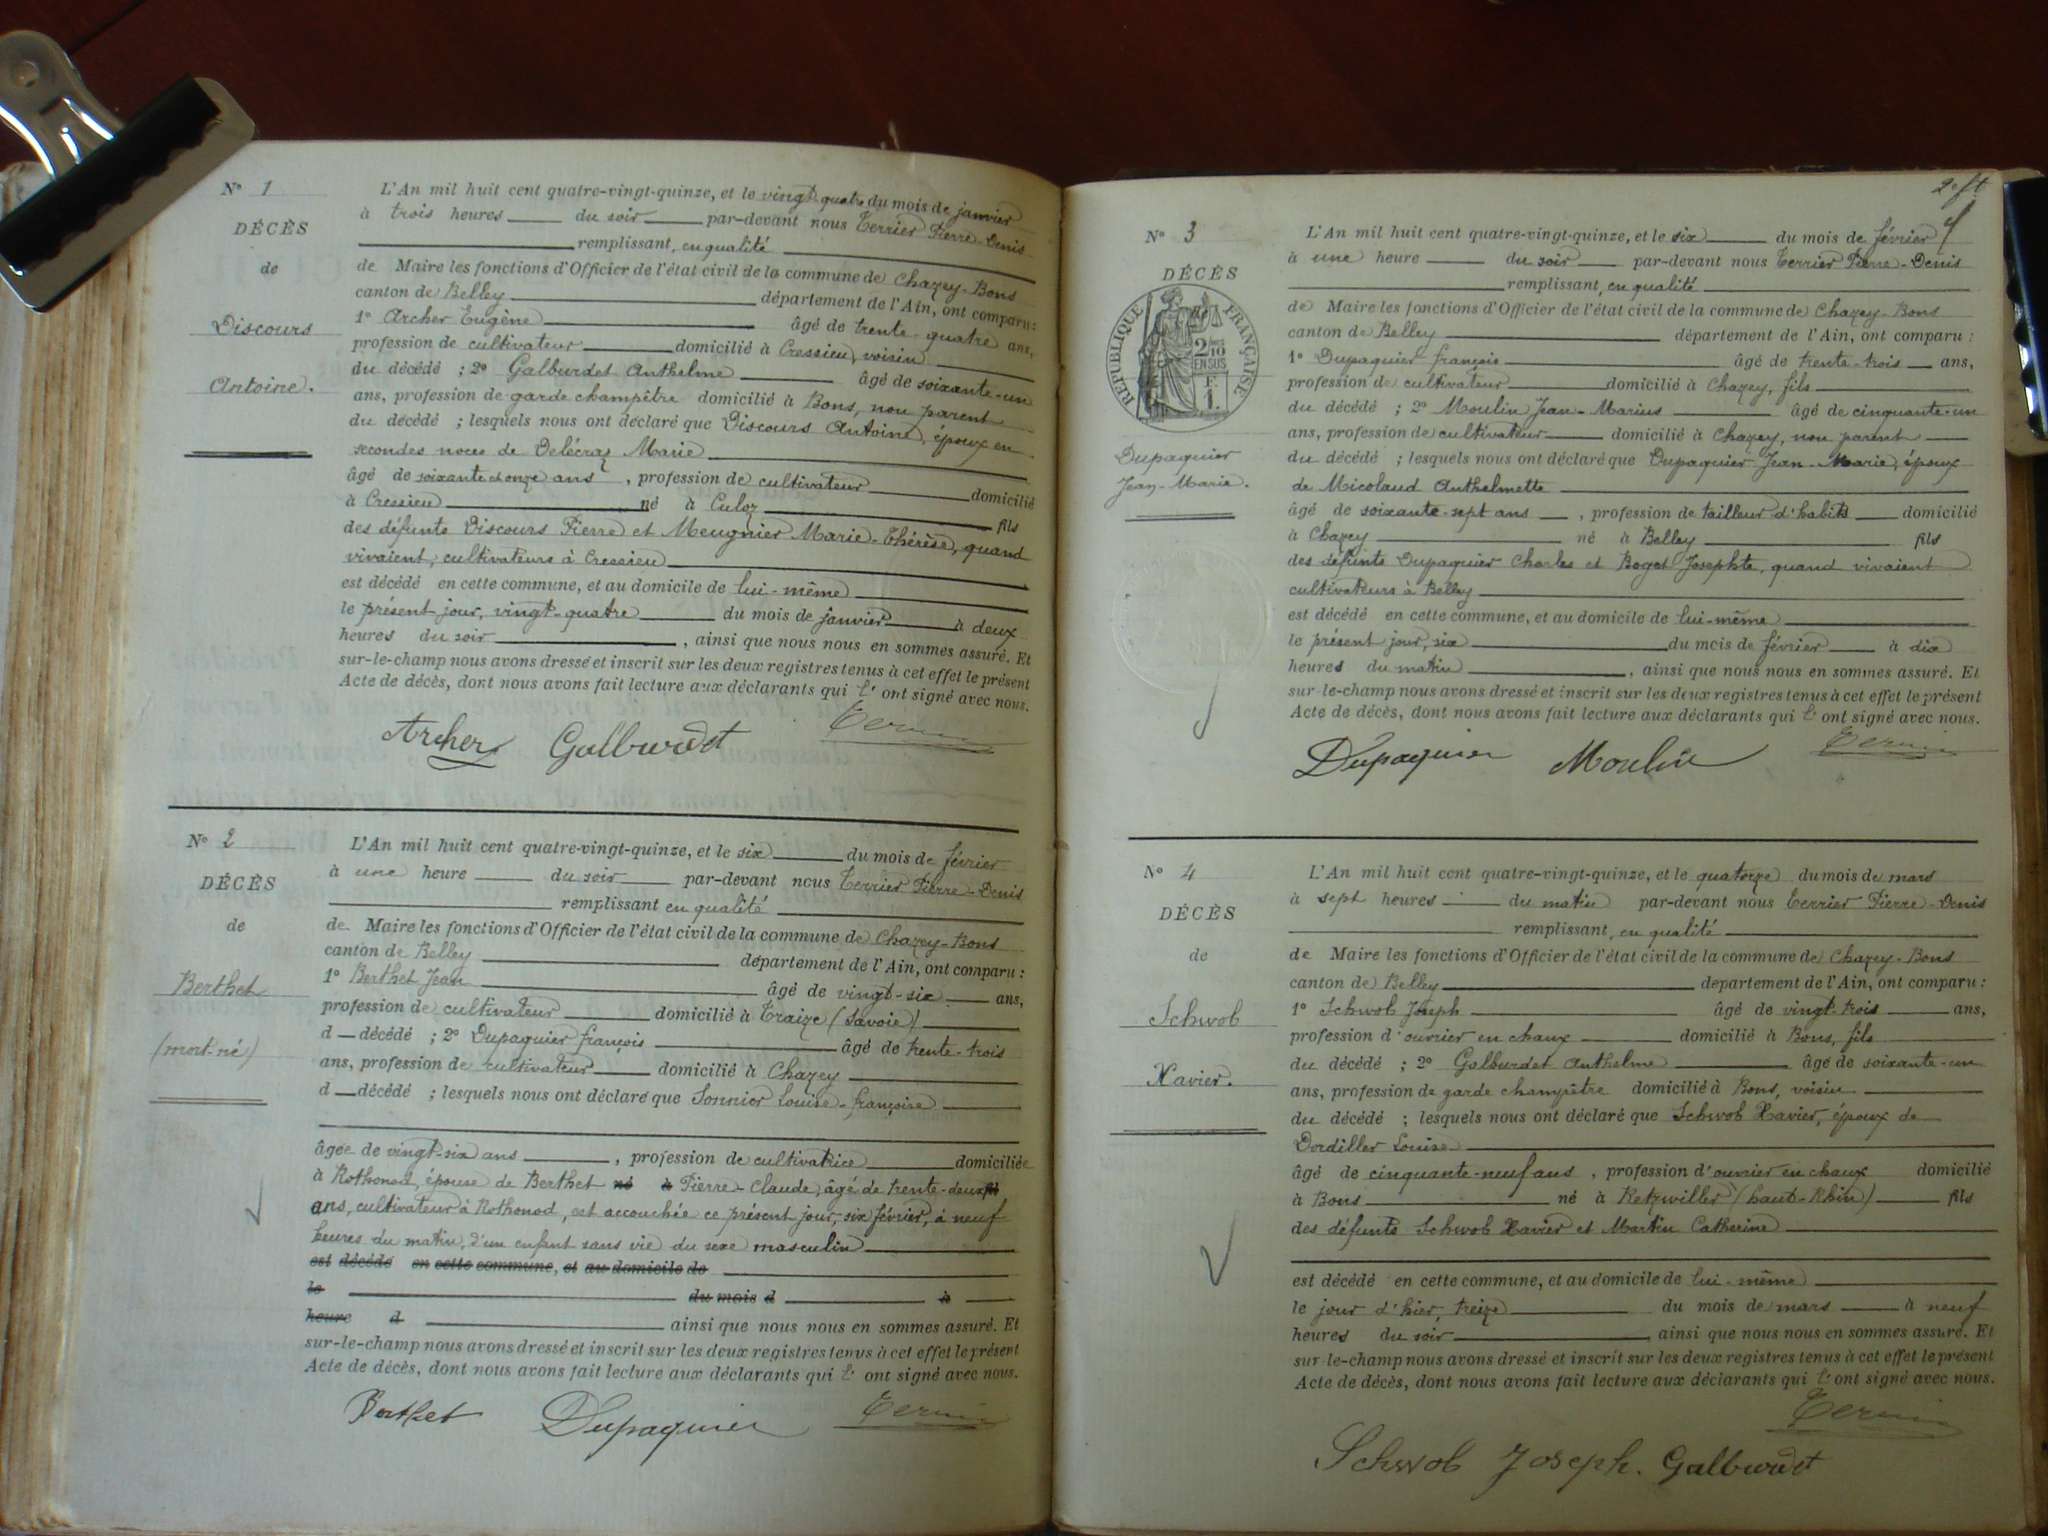 N° 1
DÉCÈS
de
Discours
Antoine.
L'An mil huit cent quatre-vingt-quinze, et le vingt quatre du mois de janvier
à trois heures du soir par-devant nous Terrier Pierre-Denis
remplissant, en qualité
de Maire les fonctions d'Officier de l'état civil de la commune de Chazey-Bons
canton de Belley département de l'Ain, ont comparu :
1° Archer Eugène âgé de trente-quatre ans,
profession de cultivateur domicilié à Cressieu, voisin
du décédé ; 2° Galburdet Anthelme âgé de soixante-un
ans, profession de garde champêtre domicilié à Bons, non parent
du décédé ; lesquels nous ont déclaré que Discours Antoine, époux en
secondes noces de Delécraz Marie
âgé de soixante et onze ans, profession de cultivateur domicilié
à Cressieu né à Culoz fils
des défunts Discours Pierre et Meugnier Marie-Thérèse, quand
vivaient, cultivateurs à Cressieu
est décédé en cette commune, et au domicile de lui-même
le présent jour, vingt-quatre du mois de janvier à deux
heures du soir, ainsi que nous nous en sommes assuré. Et
sur-le-champ nous avons dressé et inscrit sur les deux registres tenus à cet effet le présent
Acte de décès, dont nous avons fait lecture aux déclarants qui l'ont signé avec nous.
Archer Galburdet
N° 2
DÉCÈS
de
Berthet
(mort-né)
L'An mil huit cent quatre-vingt-quinze, et le six du mois de février
à une heure du soir par-devant nous Terrier Pierre-Denis
remplissant en qualité
de Maire les fonctions d'Officier de l'état civil de la commune de Chazey-Bons
canton de Belley département de l'Ain, ont comparu :
1° Berthet Jean âgé de vingt-six ans,
profession de cultivateur domicilié à Traize (Savoie)
d décédé ; 2° Dupaquier françois âgé de trente-trois
ans, profession de cultivateur domicilié à Chazey
d décédé ; lesquels nous ont déclaré que Sonnier Louise-françoise
âgée de vingt-six ans, profession de cultivatrice domiciliée
à Rothonod, épouse de Berthet né à Pierre-Claude, âgé de trente-deux fils
ans, cultivateur à Rothonod, est accouchée ce présent jour, six février, à neuf
heures du matin, d'un enfant sans vie du sexe masculin
est décédé en cette commune, et au domicile de
le du mois d à
heure d ainsi que nous nous en sommes assuré. Et
sur-le-champ nous avons dressé et inscrit sur les deux registres tenus à cet effet le présent
Acte de décès, dont nous avons fait lecture aux déclarants qui l'ont signé avec nous.
Berthet Dupaquier
N° 3
DÉCÈS
RÉPUBLIQUE FRANÇAISE
2/10 EN SUS
F. 1.
Dupaquier
Jean-Marie.
L'An mil huit cent quatre-vingt-quinze, et le six du mois de février
à une heure du soir par-devant nous Terrier Pierre-Denis
remplissant, en qualité
de Maire les fonctions d'Officier de l'état civil de la commune de Chazey-Bons
canton de Belley département de l'Ain, ont comparu :
1° Dupaquier françois âgé de trente-trois ans,
profession de cultivateur domicilié à Chazey, fils
du décédé ; 2° Moulin Jean-Marius âgé de cinquante-un
ans, profession de cultivateur domicilié à Chazey, non parent
du décédé ; lesquels nous ont déclaré que Dupaquier Jean-Marie, époux
de Micoland Anthelmette
âgé de soixante-sept ans, profession de tailleur d'habits domicilié
à Chazey né à Belley fils
des défunts Dupaquier Charles et Boget Josephte, quand vivaient
cultivateurs à Belley
est décédé en cette commune, et au domicile de lui-même
le présent jour, six du mois de février à dix
heures du matin, ainsi que nous nous en sommes assuré. Et
sur-le-champ nous avons dressé et inscrit sur les deux registres tenus à cet effet le présent
Acte de décès, dont nous avons fait lecture aux déclarants qui l'ont signé avec nous.
Dupaquier Moulin
N° 4
DÉCÈS
de
Schwob
Xavier.
L'An mil huit cent quatre-vingt-quinze, et le quatorze du mois de mars
à sept heures du matin par-devant nous Terrier Pierre-Denis
remplissant, en qualité
de Maire les fonctions d'Officier de l'état civil de la commune de Chazey-Bons
canton de Belley département de l'Ain, ont comparu :
1° Schwob Joseph âgé de vingt-trois ans,
profession d'ouvrier en chaux domicilié à Bons, fils
du décédé ; 2° Galburdet Anthelme âgé de soixante-un
ans, profession de garde champêtre domicilié à Bons, voisin
du décédé ; lesquels nous ont déclaré que Schwob Xavier, époux de
Dordiller Louise
âgé de cinquante-neuf ans, profession d'ouvrier en chaux domicilié
à Bons né à Retzwiller (haut-Rhin) fils
des défunts Schwob Xavier et Martin Catherine
est décédé en cette commune, et au domicile de lui-même
le jour d'hier, treize du mois de mars à neuf
heures du soir, ainsi que nous nous en sommes assuré. Et
sur-le-champ nous avons dressé et inscrit sur les deux registres tenus à cet effet le présent
Acte de décès, dont nous avons fait lecture aux déclarants qui l'ont signé avec nous.
Schwob Joseph. Galburdet